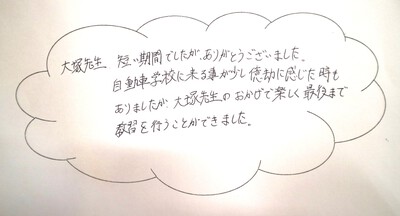 大塚先生 短い期間でしたが、ありがとうございました。
自動車学校に来る事が少し億劫に感じた時も
ありましたが、大塚先生のおかげで楽しく最後まで
教習を行うことができました。